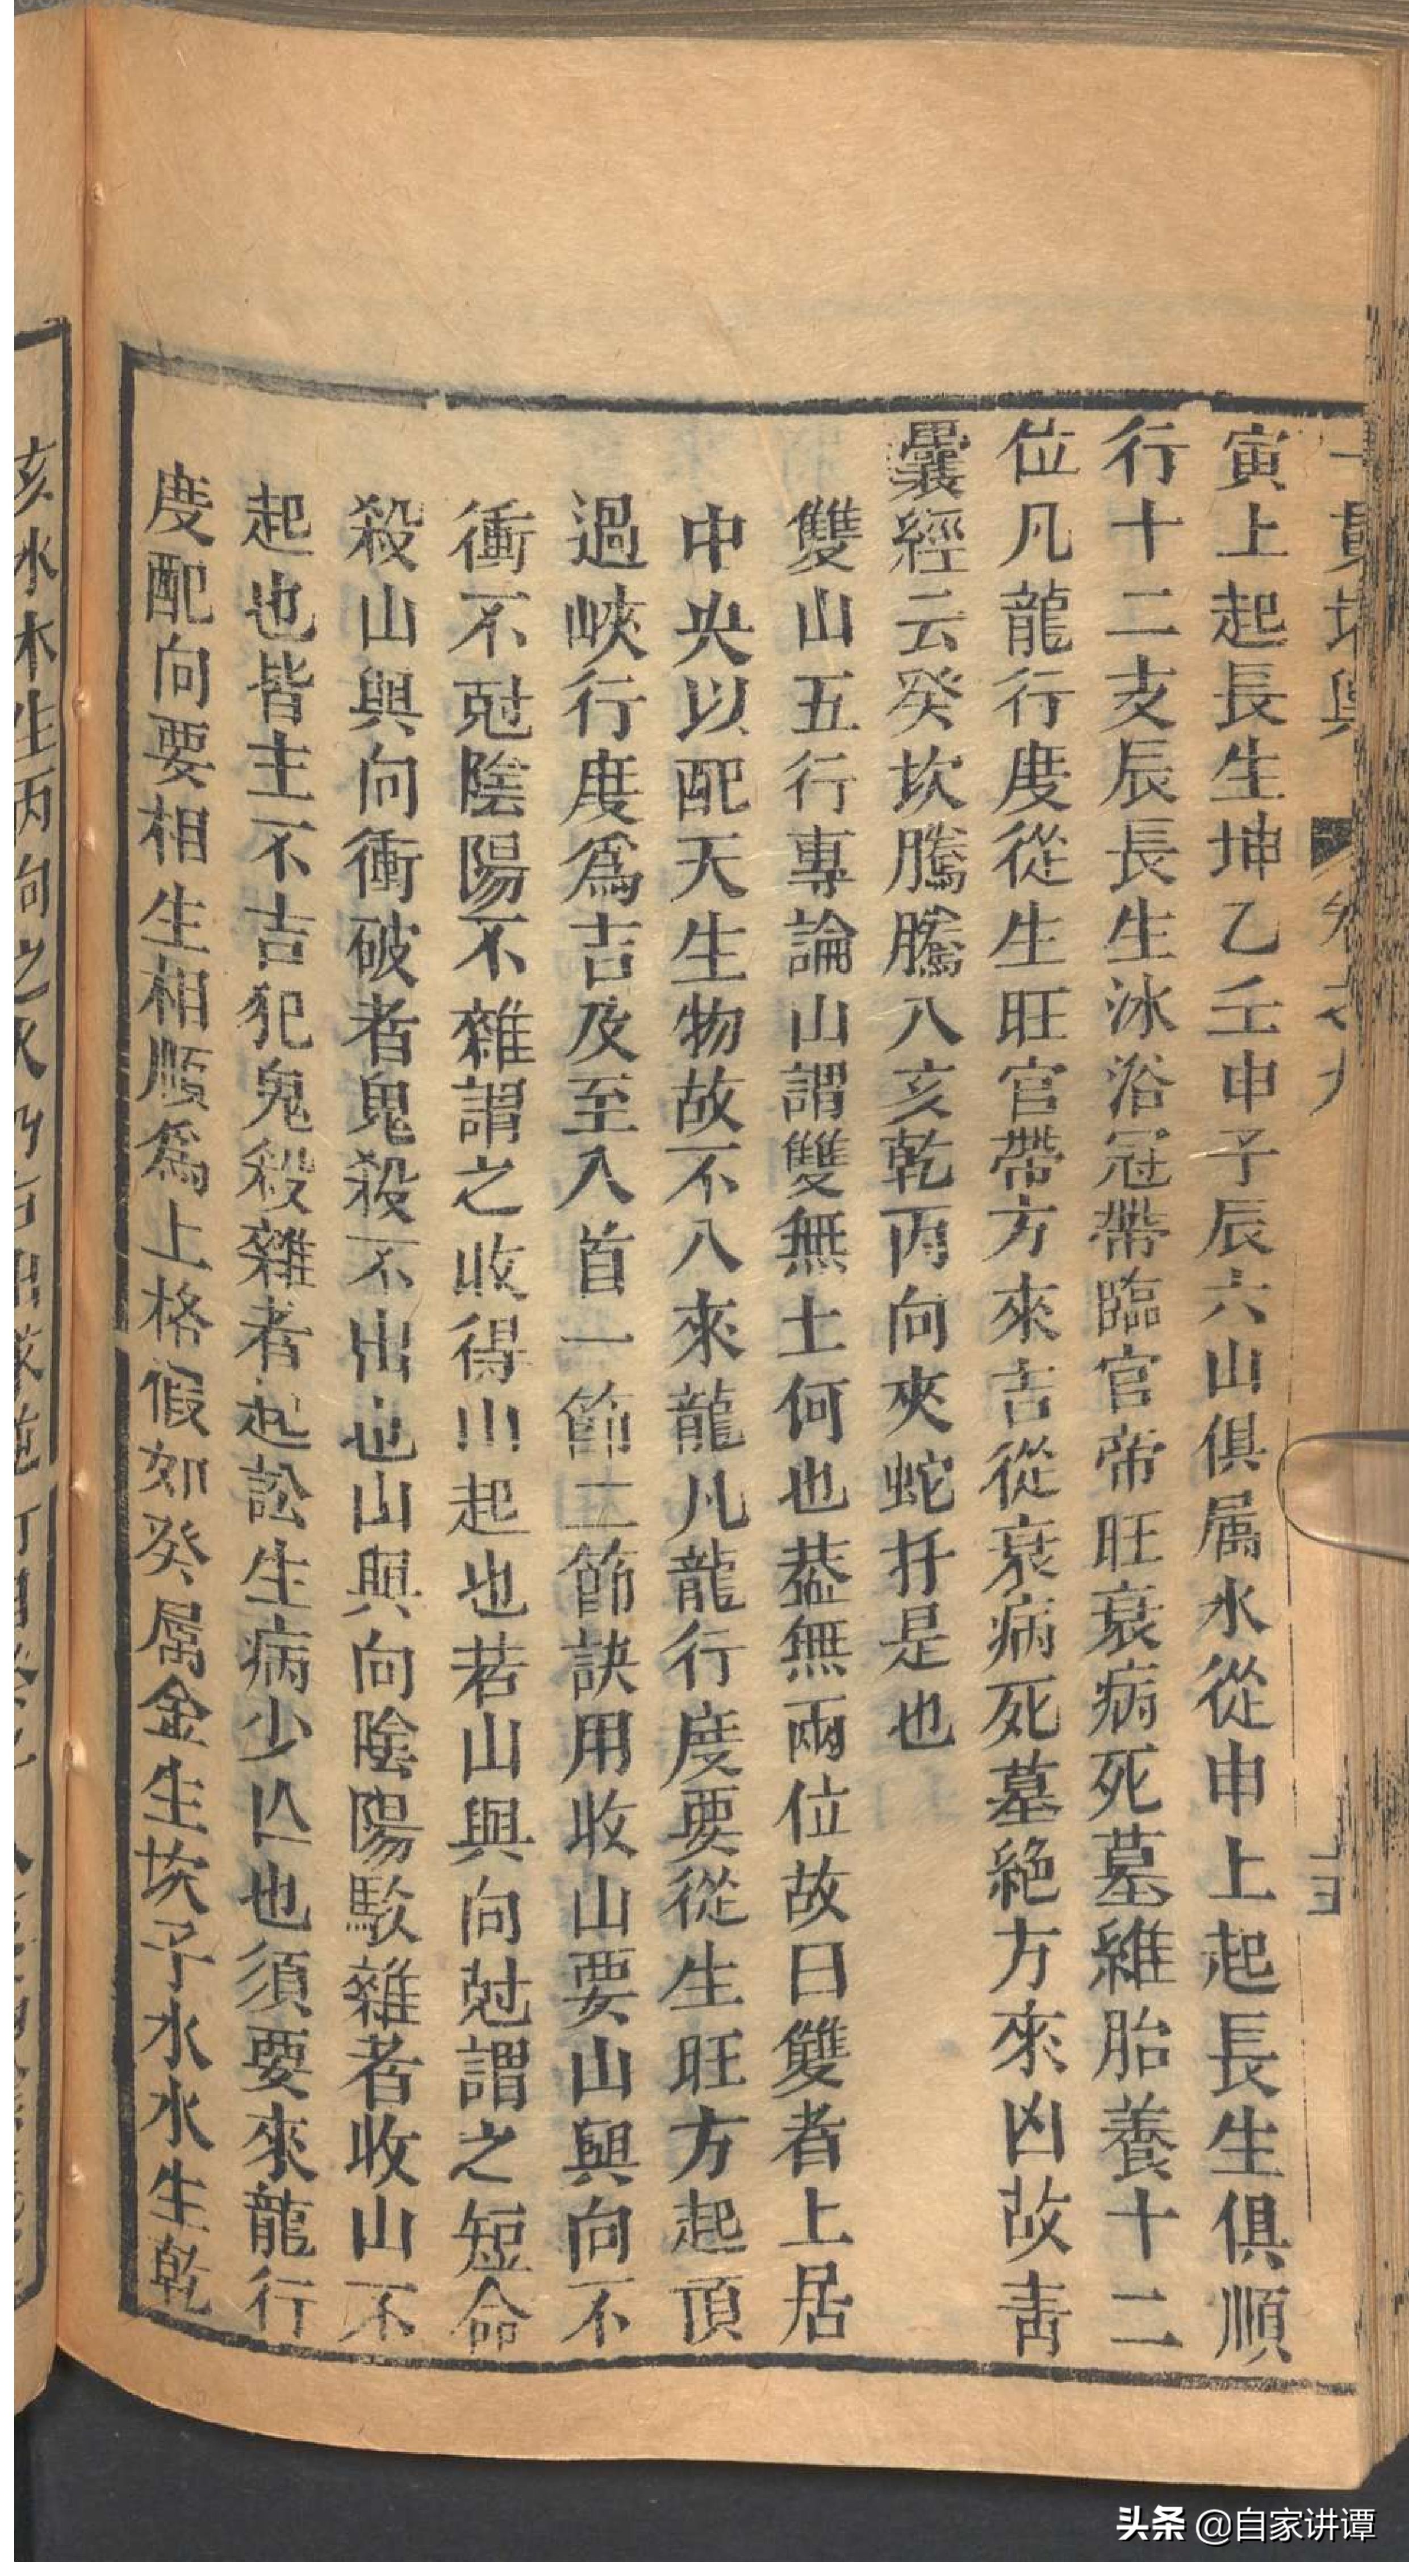 一貫堪輿 卷之九
寅上起長生坤乙壬申子辰六山俱属水從申上起長生俱順
行十二支辰長生沐浴冠帶臨官帝旺衰病死墓絕胎養十二
位凡龍行度從生旺官帶方來吉從衰病死墓絕方來凶故靑
曩經云癸坎騰騰八亥乾丙向夾蛇扦是也
雙山五行專論山謂雙無土何也葢無兩位故曰雙者上居
中央以配天生物故不八來龍凡龍行度要從生旺方起頂
過峽行度爲吉及至入首一節二節訣用收山要山與向不
衝不尅陰陽不雜謂之收得山起也若山與向尅謂之短命
殺山與向衝破者鬼殺不出也山與向陰陽駁雜者收山不
起也皆主不吉犯鬼殺雜者起訟生病少亾也須要來龍行
度配向要相生相順爲上格假如癸属金生坎子水水生乾
亥水木生丙向之火乃
頭条 @自家讲谭